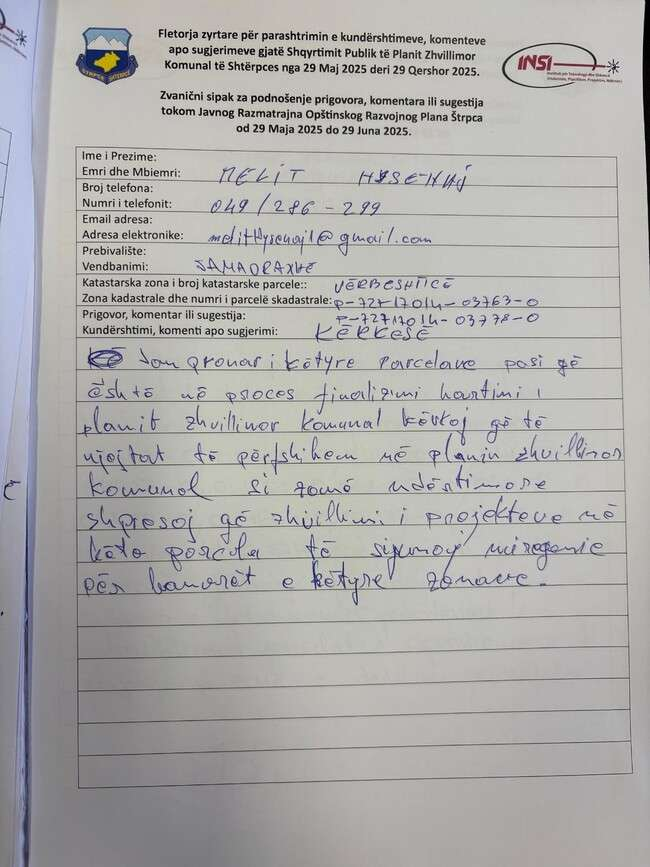 Fletorja zyrtare për parashtrimin e kundërshtimeve, komenteve
apo sugjerimeve gjatë Shqyrtimit Publik të Planit Zhvillimor
Komunal të Shtërpces nga 29 Maj 2025 deri 29 Qershor 2025.
Zvanični sipak za podnošenje prigovora, komentara ili sugestija
tokom Javnog Razmatrajna Opštinskog Razvojnog Plana Štrpca
od 29 Maja 2025 do 29 Juna 2025.
INSI
Ime i Prezime:
Emri dhe Mbiemri: MELIT HYSENAJ
Broj telefona:
Numri i telefonit: 049/286-299
Email adresa:
Adresa elektronike: melithysenaj1@gmail.com
Prebivalište:
Vendbanimi: JAMADRAXHE
Katastarska zona i broj katastarske parcele:: VËRBESHTICË
Zona kadastrale dhe numri i parcelë skadastrale: P-72717014-03763-0
Prigovor, komentar ili sugestija: P-72717014-03778-0
Kundërshtimi, komenti apo sugjerimi: KËRKESË
Jam pronar i këtyre parcelave pasi që
është në proces finalizimi hartimi i
planit zhvillimor komunal kërkoj që të
njejtat të përfshihen në planin zhvillimor
komunal si zonë ndërtimore
shpresoj që zhvillimi i projekteve në
këto parcela të sigurojë mirëqenie
për banorët e këtyre zonave.